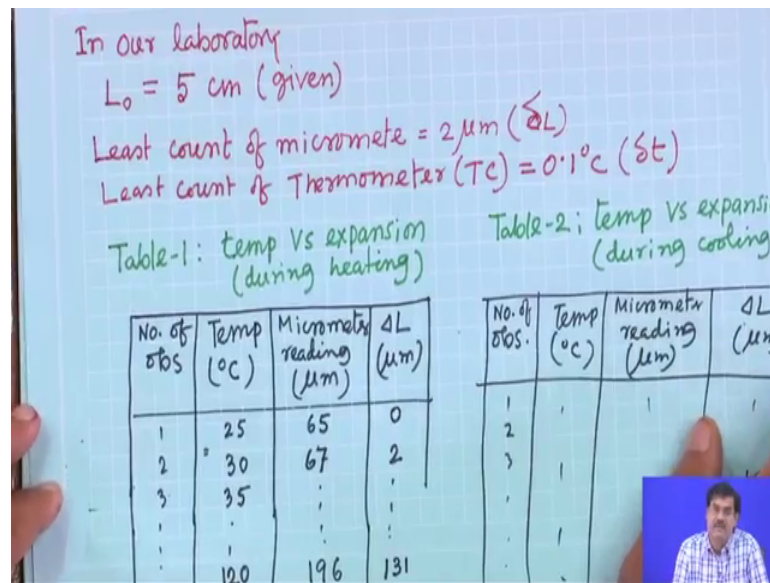 In our laboratory
L₀ = 5 cm (given)
Least count of micromete = 2 μm (δL)
Least count of Thermometer (TC) = 0.1°C (δt)
Table-1: temp Vs expansion
(during heating)
No. of obs Temp (°C) Micrometer reading (μm) ΔL (μm)
1 25 65 0
2 30 67 2
3 35 : :
120 196 131
Table-2: temp Vs expansi
(during cooling
No. of obs. Temp (°C) Micrometer reading (μm) ΔL (μm
1
2
3